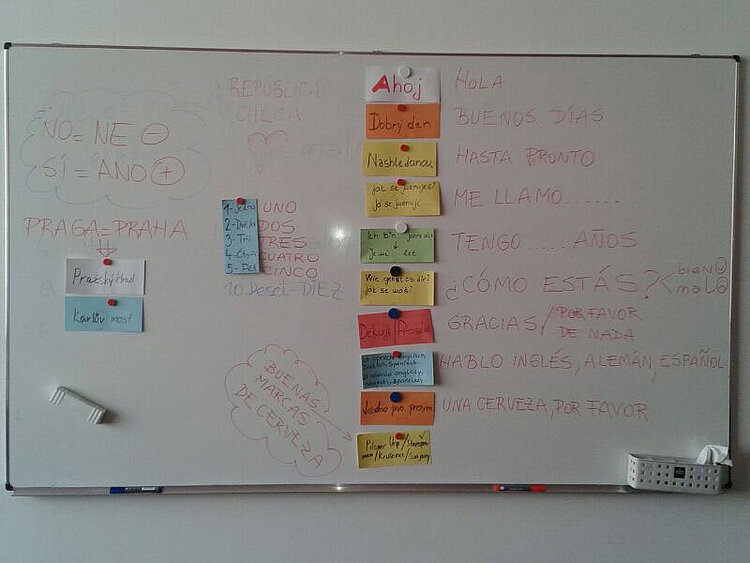 NO = NE ⊖
SÍ = ANO ⊕
PRAGA = PRAHA
Pražský Hrad
Karlův most
REPÚBLICA
CHECA
1-Jedna UNO
2-Dva DOS
3-Tři TRES
4- CUATRO
5- Pět CINCO
10 Deset = DIEZ
BUENAS
MARCAS
DE CERVEZA
Ahoj HOLA
Dobrý den BUENOS DÍAS
Nashledanou HASTA PRONTO
Jak se jmenuješ?
Já se jmenuji ME LLAMO......
Ich bin
let TENGO .... AÑOS
Wie geht es dir?
Jak se ¿CÓMO ESTÁS? bien
malo
Děkuji/Prosím GRACIAS/POR FAVOR
DE NADA
HABLO INGLÉS, ALEMÁN, ESPAÑOL
Jedno pivo prosím UNA CERVEZA, POR FAVOR
Pilsner